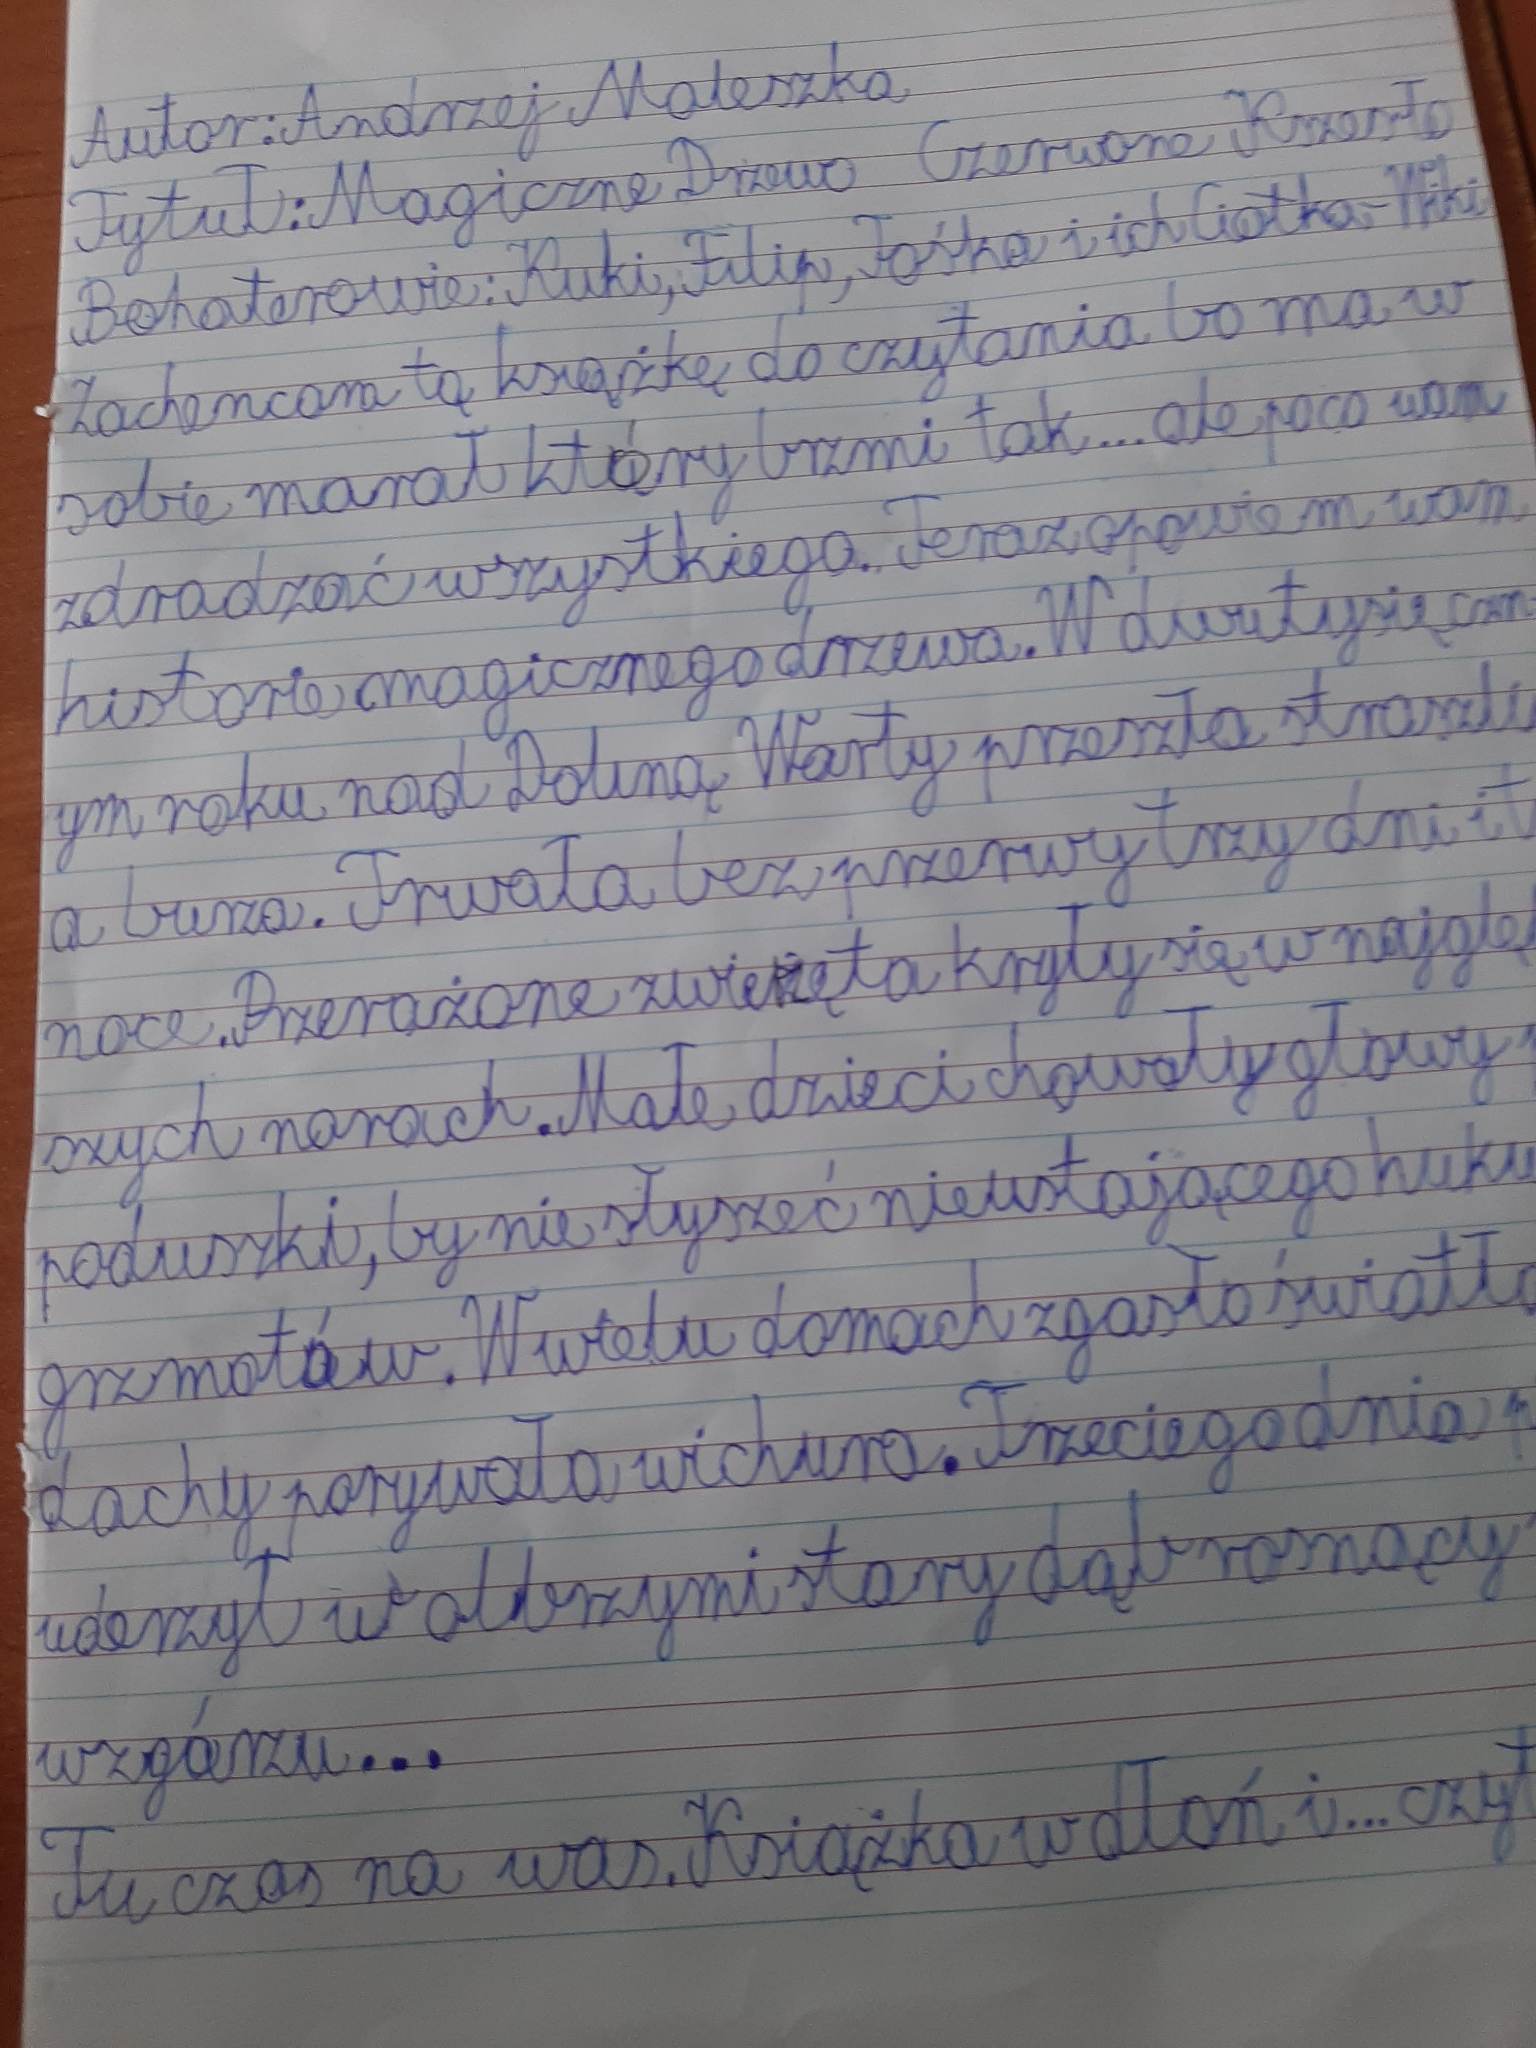 Autor: Andrzej Maleszka
Tytuł: Magiczne Drzewo Czerwone Krzesło
Bohaterowie: Kuki, Filip, Tośka i ich Ciotka-Wiki
Zachencam tą książkę do czytania bo ma w
sobie morał który brzmi tak... ale poco wam
zdradzać wszystkiego. Teraz opowiem wam
historie magicznego drzewa. W dwutysięczn-
ym roku nad Doliną Warty przeszła straszli
a burza. Trwała bez przerwy trzy dni i t
noce. Przerażone zwierzęta kryły się w najgłę
szych norach. Małe dzieci chowały głowy
poduszki, by nie słyszeć nieustającego huku
grzmotów. W wielu domach zgasło światło
dachy porywała wichura. Trzeciego dnia p
uderzył w olbrzymi stary dąb rosnący
wzgórzu...
Tu czas na was. Książka w dłoń i... czyt